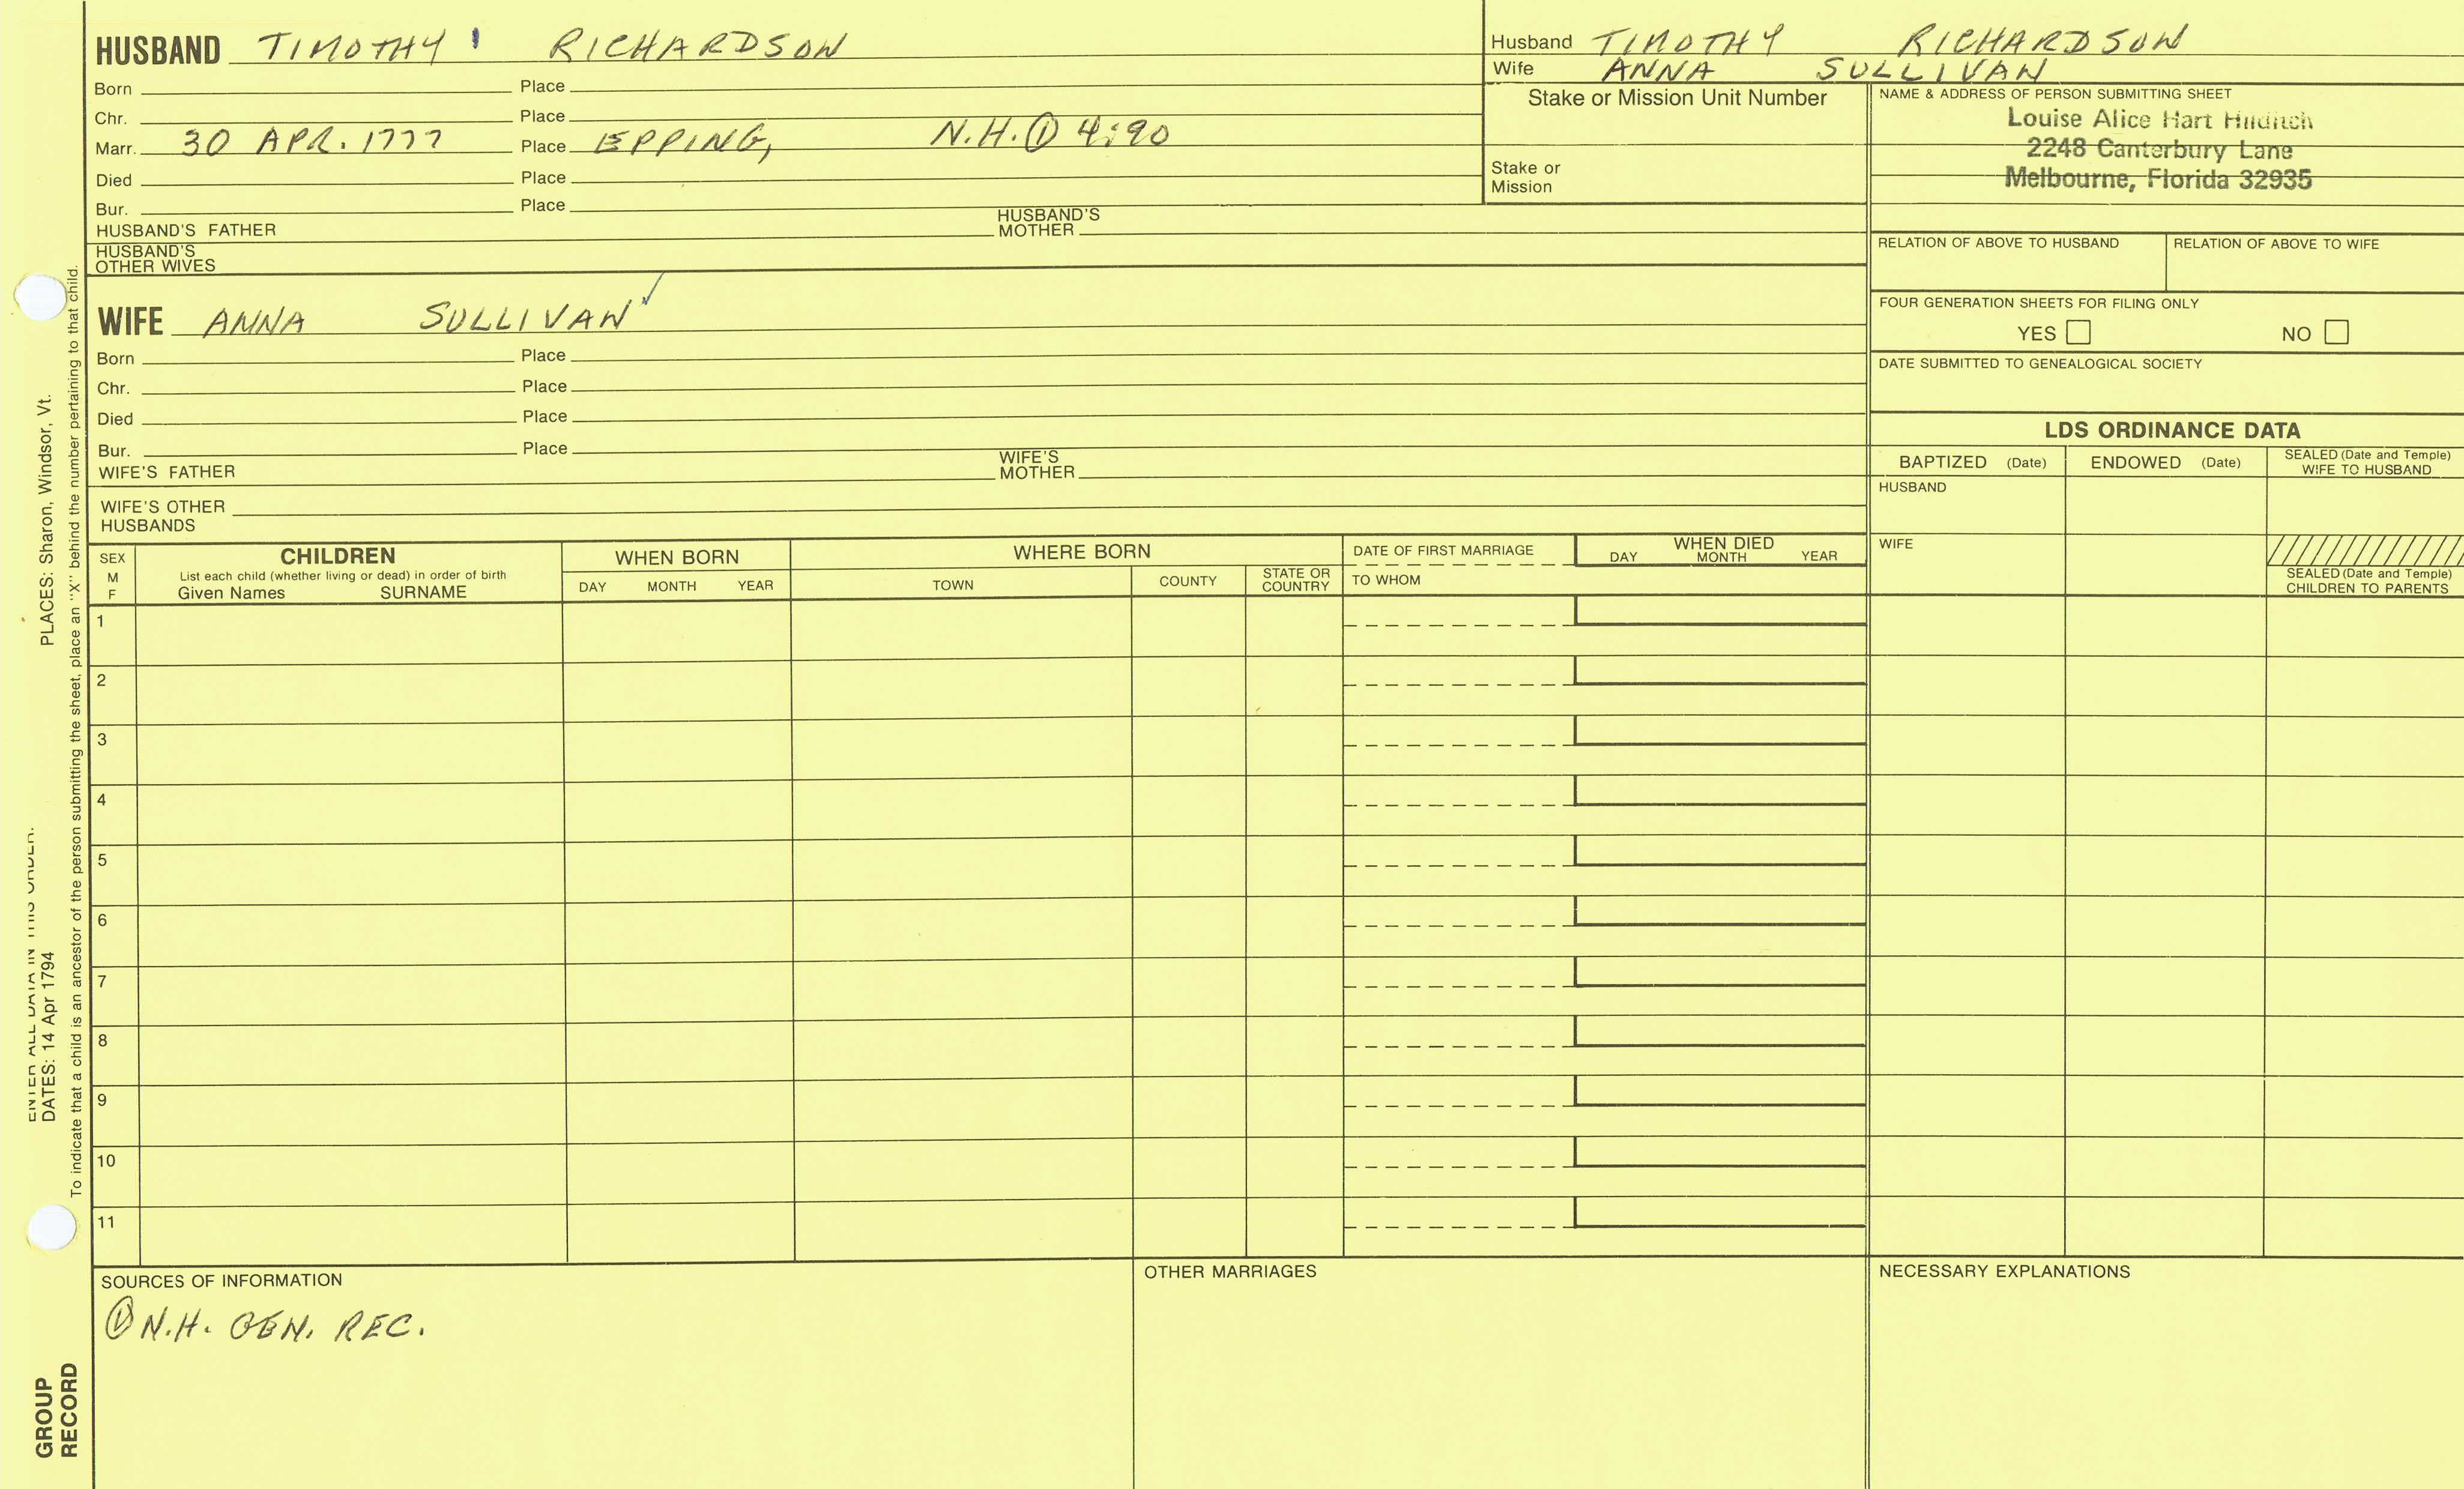 HUSBAND TIMOTHY RICHARDSON
Born Place
Chr. Place
Marr. 30 APR. 1777 Place EPPING, N.H. ① 4:90
Died Place
Bur. Place
HUSBAND'S FATHER HUSBAND'S MOTHER
HUSBAND'S OTHER WIVES
WIFE ANNA SULLIVAN ✓
Born Place
Chr. Place
Died Place
Bur. Place
WIFE'S FATHER WIFE'S MOTHER
WIFE'S OTHER HUSBANDS
Husband TIMOTHY RICHARDSON
Wife ANNA SULLIVAN
Stake or Mission Unit Number
Stake or Mission
NAME & ADDRESS OF PERSON SUBMITTING SHEET
Louise Alice Hart
2248 Canterbury Lane
Melbourne, Florida 32935
RELATION OF ABOVE TO HUSBAND RELATION OF ABOVE TO WIFE
FOUR GENERATION SHEETS FOR FILING ONLY
YES NO
DATE SUBMITTED TO GENEALOGICAL SOCIETY
LDS ORDINANCE DATA
BAPTIZED (Date) ENDOWED (Date) SEALED (Date and Temple) WIFE TO HUSBAND
HUSBAND
WIFE
SEALED (Date and Temple) CHILDREN TO PARENTS
SEX M F
CHILDREN
List each child (whether living or dead) in order of birth
Given Names SURNAME
WHEN BORN
DAY MONTH YEAR
WHERE BORN
TOWN COUNTY STATE OR COUNTRY
DATE OF FIRST MARRIAGE
TO WHOM
WHEN DIED
DAY MONTH YEAR
1
2
3
4
5
6
7
8
9
10
11
SOURCES OF INFORMATION
① N.H. GEN. REC.
OTHER MARRIAGES
NECESSARY EXPLANATIONS
GROUP RECORD
ENTER ALL DATA IN THIS ORDER:
DATES: 14 Apr 1794 PLACES: Sharon, Windsor, Vt.
To indicate that a child is an ancestor of the person submitting the sheet, place an "X" behind the number pertaining to that child.